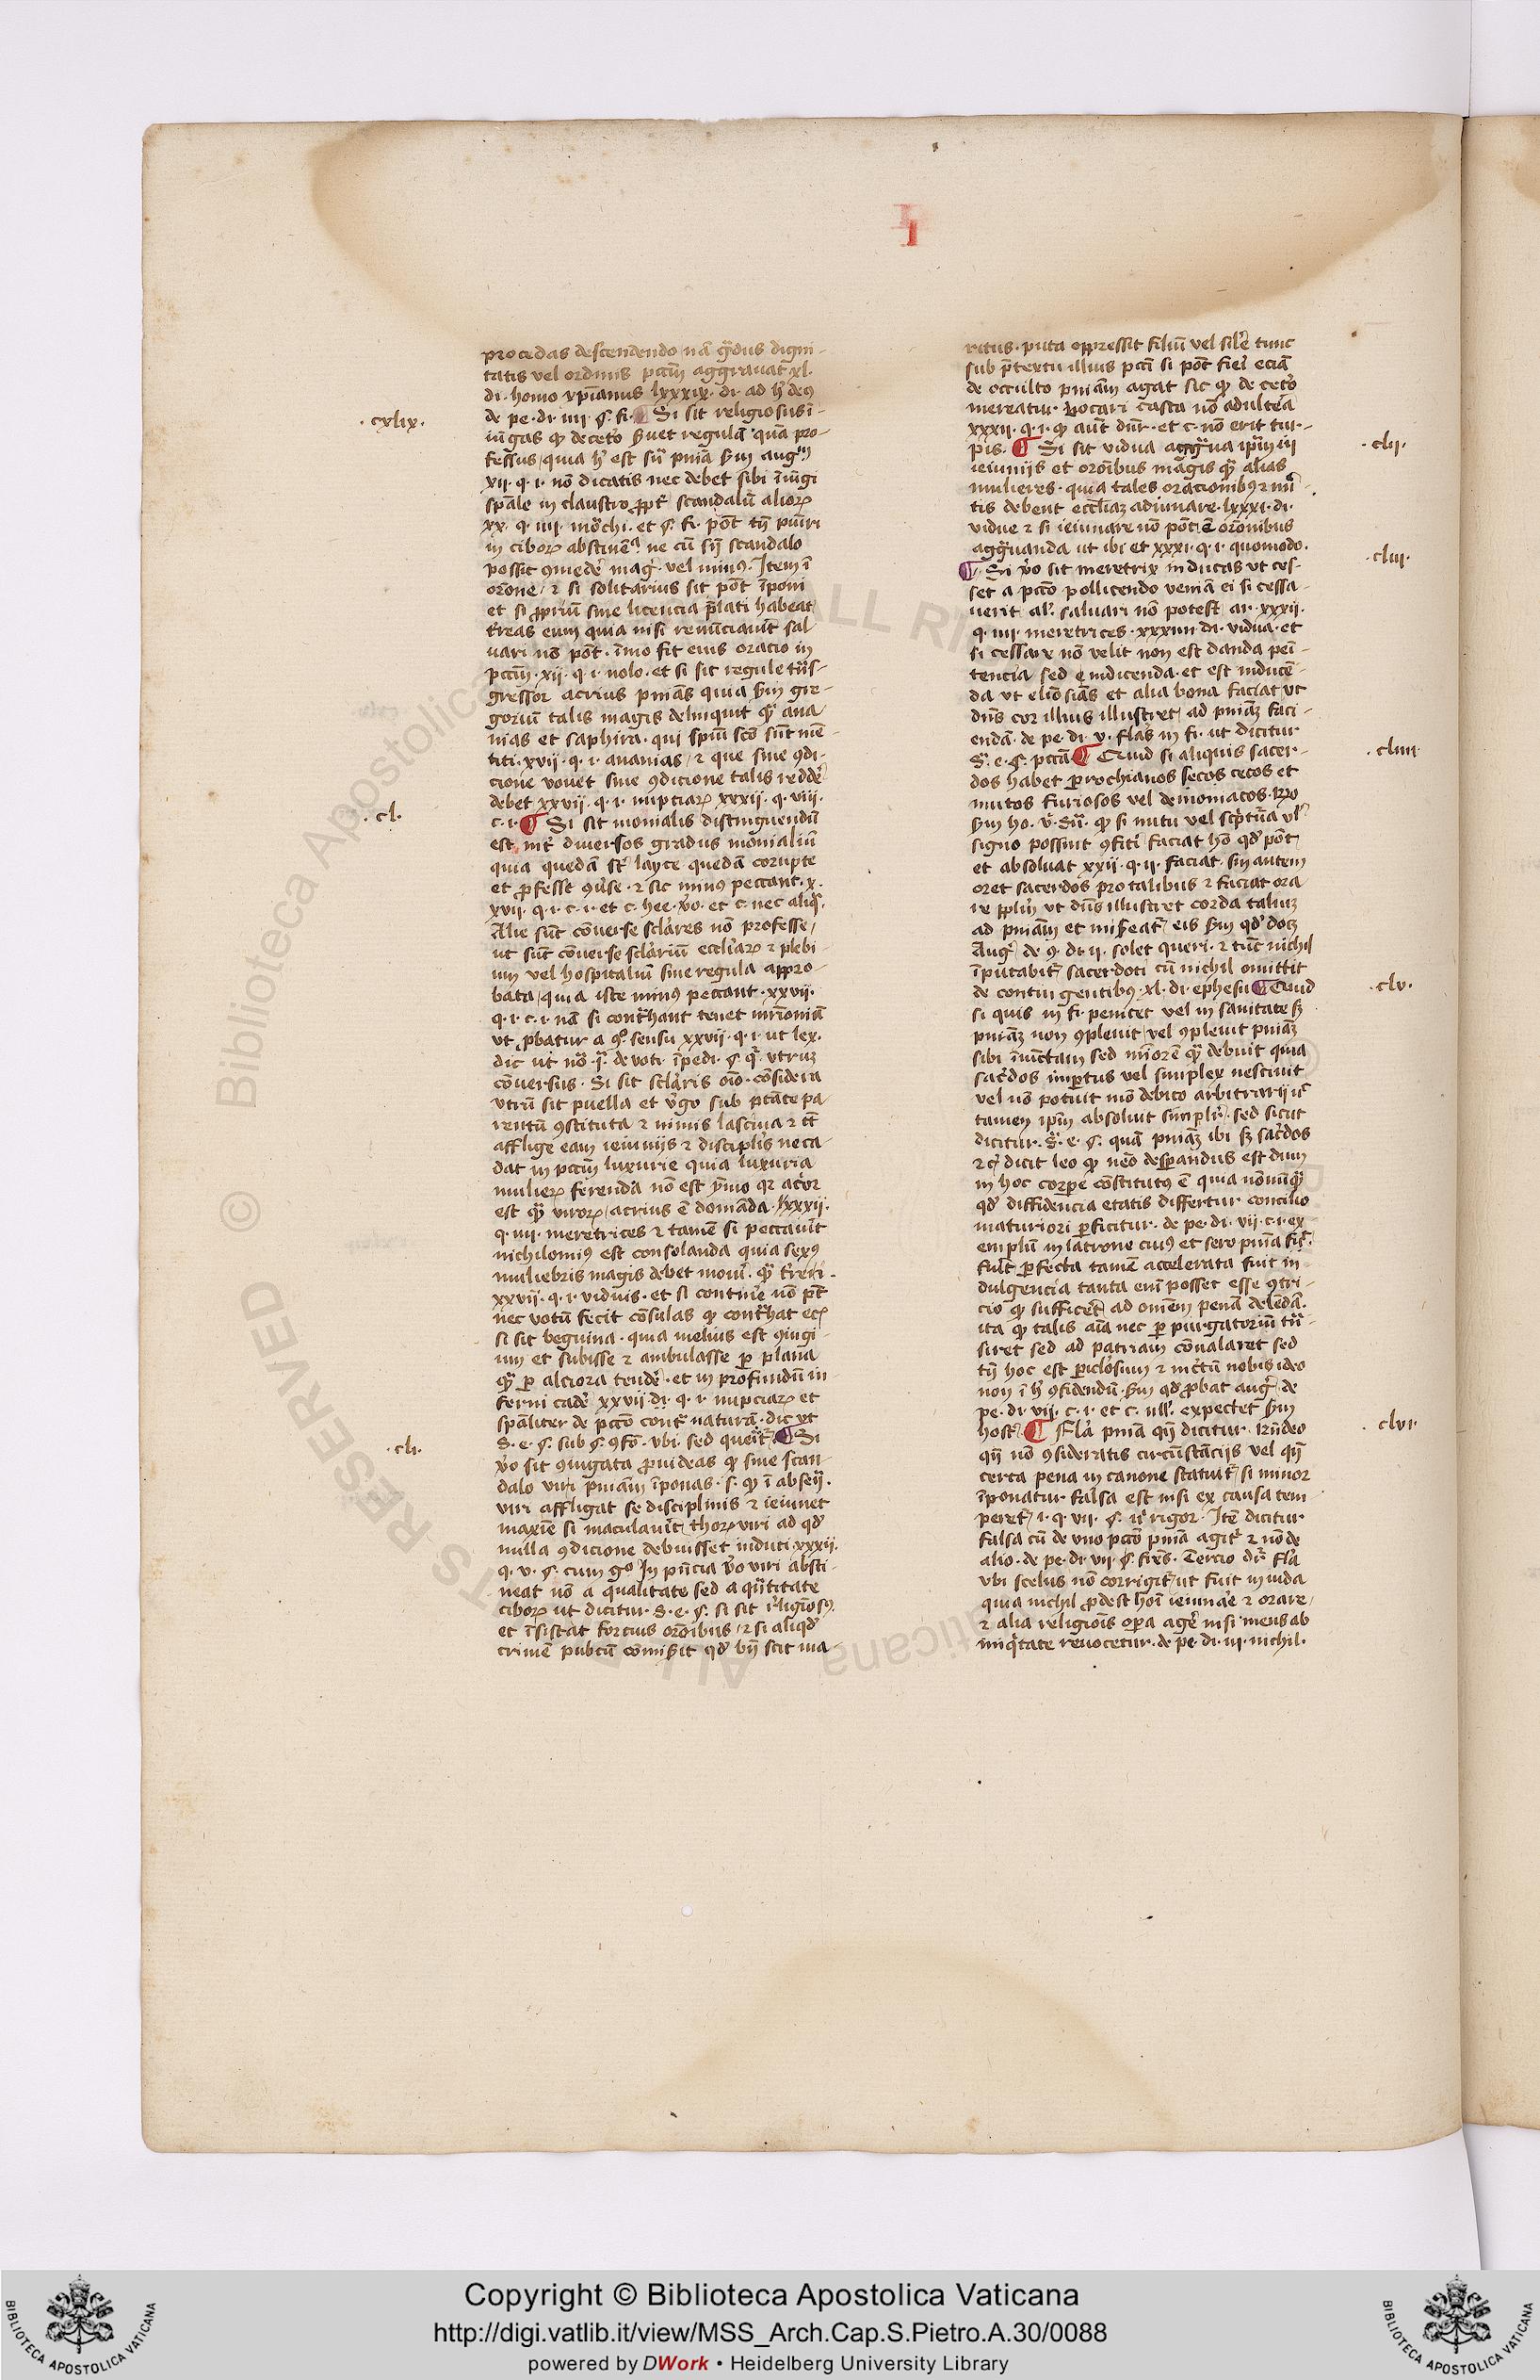 procedas descendendo nā gᷓdus digni-
tatis vel ordinis pctm̄ aggravat xl.
di. homo xp̄ianus lxxxix. di. ad hͨ deꝰ
· cxlix. de pe. di. iiii. §. fi. ¶ Si sit religiosus ī-
iūgas ꝙ de ceto s̄uet regulā quā pro-
fessus quia hͨ est
xii. q. i. nō dicatis nec debet sibi iniūgi
sp̄ale in claustro ꝓpt̄ scandalū alioꝝ
xx. q. iiii. mōchi. et §. fi. pōt tn̄ puniri
in ciboꝝ abstinē ne cū sn̄ scandalo
possit ꝯmedē mag vel minꝰ. Item ī
orōne ⁊ si solitarius sit pōt īponi
et si ꝓpriū sine licencia p̄lati habeat
t̄reas eum quia nisi renūciavit sal
vari nō pōt. īmo fit eius oracio in
pctm̄. xii. q. i. nolo. et si sit regule tn̄s-
gressor acrius pniās quia s̄m gre-
goriū talis magis delinquit qᷓ ana-
nias et saphira. qui spm̄ scō sūt mē-
titi. xvii. q. i. ananias ⁊ que sine ꝯdi-
cione vovet sine ꝯdicione talis reddē
debet xxvii. q. i. nupciaꝝ xxxii. q. viii.
· cl. c. i. ¶ Si sit monialis distinguendū
est int̄ diversos gradus monialiū
quia quedā st̄ layce quedā corupte
et ꝓfesse ꝯv̄se. ⁊ sic minꝰ peccant. x.
xvii. q. i. c. i. et c. hee. v̄o. et c. nec aliqᷓ.
Alie sūt cōverse sclāres nō professe
ut sunt cōverse sclāriū eccliaꝝ ⁊ plebi-
um vel hospitaliū sine regula appro-
bata quia iste minꝰ peccant. xxvii.
q. i. c. i. nā si cont̄hant tenet mr̄imoniā
ut ꝓbatur a ꝯͦ sensu xxvii. q. i. ut lex.
dic ut nō. de voti īpedi. §. qᷓ. utrūz
cōversus. Si sit sclāris oīo. cōsidera
vtrū sit puella et v̄go sub ptāte pa-
rentū ꝯstituta ⁊ nimis lasciva ⁊ tt̄
afflige eam ieiuniis ⁊ disciplis ne ca-
dat in pctm̄ luxurie quia luxuria
mulieꝝ ferenda nō est ymo qr̄ acior
est qᷓ viroꝝ acrius ē domāda. lxxxii.
q. iiii. meretrices ⁊ tamē si peccavit
nichilominꝰ est consolanda quia sexꝰ
muliebris magis debet moveri qᷓ t̄reri.
xxvii. q. i. viduis. et si contine nō pt̄
nec votū fecit cōsulas ꝙ cont̄hat
si sit beguina. quia melius est ꝯiugi-
um et subisse ⁊ ambulasse ꝑ plana
qᷓ ꝑ alciora tendē. et in profundū in-
ferni cadē xxvii di. q. i. nupciaꝝ et
spāliter de pctō cont̄ naturā. dic ut
· cli. S. e. §. sub §. ꝯfō. vbi. sed queit̄. ¶ Si
v̄o sit ꝯiugata ꝓvideas ꝙ sine scan-
dalo viri pniām īponas. s. ꝙ ī absen̄.
viri affligat se disciplinis ⁊ ieiunet
maxie si maculavit thoꝝ viri ad qd̄
nulla ꝯdicione debuisset induci xxxii.
q. v. §. cum gͦ In pn̄cia v̄o viri absti-
neat nō a qualitate sed a qn̄titate
ciboꝝ ut dicitur. S. e. §. si sit religiosꝰ.
et īsistat forcius orōibus ⁊ si aliqd̄
crimē publicū cōmisit qd̄ bn̄ scit ma-
ritus. puta oppressit filiū vel silē tunc
sub p̄textu illius pctī si pōt fieri eciā
de occulto pniām agat sic ꝙ de ceto
mereatur vocari casta nō adultēa
xxxii. q. i. ꝙ aūt dn̄r. et c. nō erit tur-
· clii. pis. ¶ Si sit vidua aggᷓva ipm̄
ieiuniis et orōibus magis qᷓ alias
mulieres. quia tales oracionibꝰ ⁊ mī-
tis debent eccliāz adiuvare. lxxxi. di.
vidue ⁊ si ieiunare nō pōt ē orōnibus
aggᷓvanda ut ibi et xxxi. q. i. quomodo.
· cliii. ¶ Si v̄o sit meretrix inducas ut ces-
set a pctō pollicendo veniā ei si cessa-
verit al. salvari nō potest ar. xxxii.
q. iiii. meretrices. xxxiiii di. vidua. et
si cessare nō velit non est danda peī-
tencia sed indicenda. et est inducē-
da ut eliosīas et alia bona faciat ut
dn̄s cor illius illustret ad pniāz faci-
endā. de pe. di. v. flās in fi. ut dicitur
· cliiii S. e. §. pctā ¶ Quid si aliquis sacer-
dos habet ꝑrochianos secos cecos et
mutos furiosos vel demoniacos. Rn̄o
s̄m ho. ꝙ si nutu vel scpt̄ura vl
signo possint ꝯfiteri faciat hō qd̄ pōt
et absolvat xxii. q. ii. faciat. sin autem
oret sacerdos pro talibus ⁊ faciat ora
re ppl̄m ut dn̄s illustret corda taliuz
ad pniām et misereat̄ eis s̄m qd̄ docz
Aug. de ꝯ. di. ii. solet queri. ⁊ tūc nichil
īputabit̄ sacerdoti cū nichil omittit
· clv. de contingentibꝰ. xl. di. ephesiis ¶ Quid
si quis in fi. penitet vel in sanitate sz
pniāz non ꝯplevit vel ꝯplevit pniāz
sibi iniūctam sed minorē qᷓ debuit quia
sac̄dos impitus vel simplex nescivit
vel nō potuit mō debito arbitrari
tamen ipm̄ absolvit simplr̄. sed sicut
dicitur. S. e. §. quā pniāz ibi sz sac̄dos
dicit leo ꝙ nēo despandus est dum
in hoc corpe cōstitutꝰ ē quia nōnūqᷓ
qd̄ diffidencia etatis differtur concilio
maturiori ꝑficitur. de pe. di. vii. c. i. ex
emplū in latrone cuiꝰ et sero pnīa fr̄.
fuit ꝑfecta tamē accelerata fuit in
dulgencia tanta enī posset esse ꝯtri-
cio ꝙ sufficeret ad omēm penā delendā.
ita ꝙ talis aīa nec ꝑ purgatoriū tn̄-
siret sed ad patriam cōvalaret sed
tn̄ hoc est ꝑiclosum ⁊ inctū nobis ideo
non ī hͨ ꝯfidendū. s̄m qd̄ ꝓbat aug. de
pe. di. vii. c. i. et c. null. expectet s̄m
· clvi host. ¶ Flā pniā qn̄ dicitur Rn̄deo
qn̄ nō ꝯsideratis circūstāciis vel qn̄
certa pena in canone statuit̄ si minor
īponatur falsa est nisi ex causa tem
peret̄ i. q. vii. §. n̄ rigor. Itē dicitur
falsa cū de uno pctō pniā agit̄ ⁊ nō de
alio. de pe. di. vii. §. frēs. Tercio dr̄. flā
ubi scelus nō corrigit̄ ut fuit in iuda
quia nichil ꝓdest hoī ieiunare ⁊ orare
⁊ alia religiois opa agē nisi mens ab
iniqᷓtate revocetur. de pe. di. iii. nichil.
Copyright © Biblioteca Apostolica Vaticana
http://digi.vatlib.it/view/MSS_Arch.Cap.S.Pietro.A.30/0088
powered by DWork • Heidelberg University Library